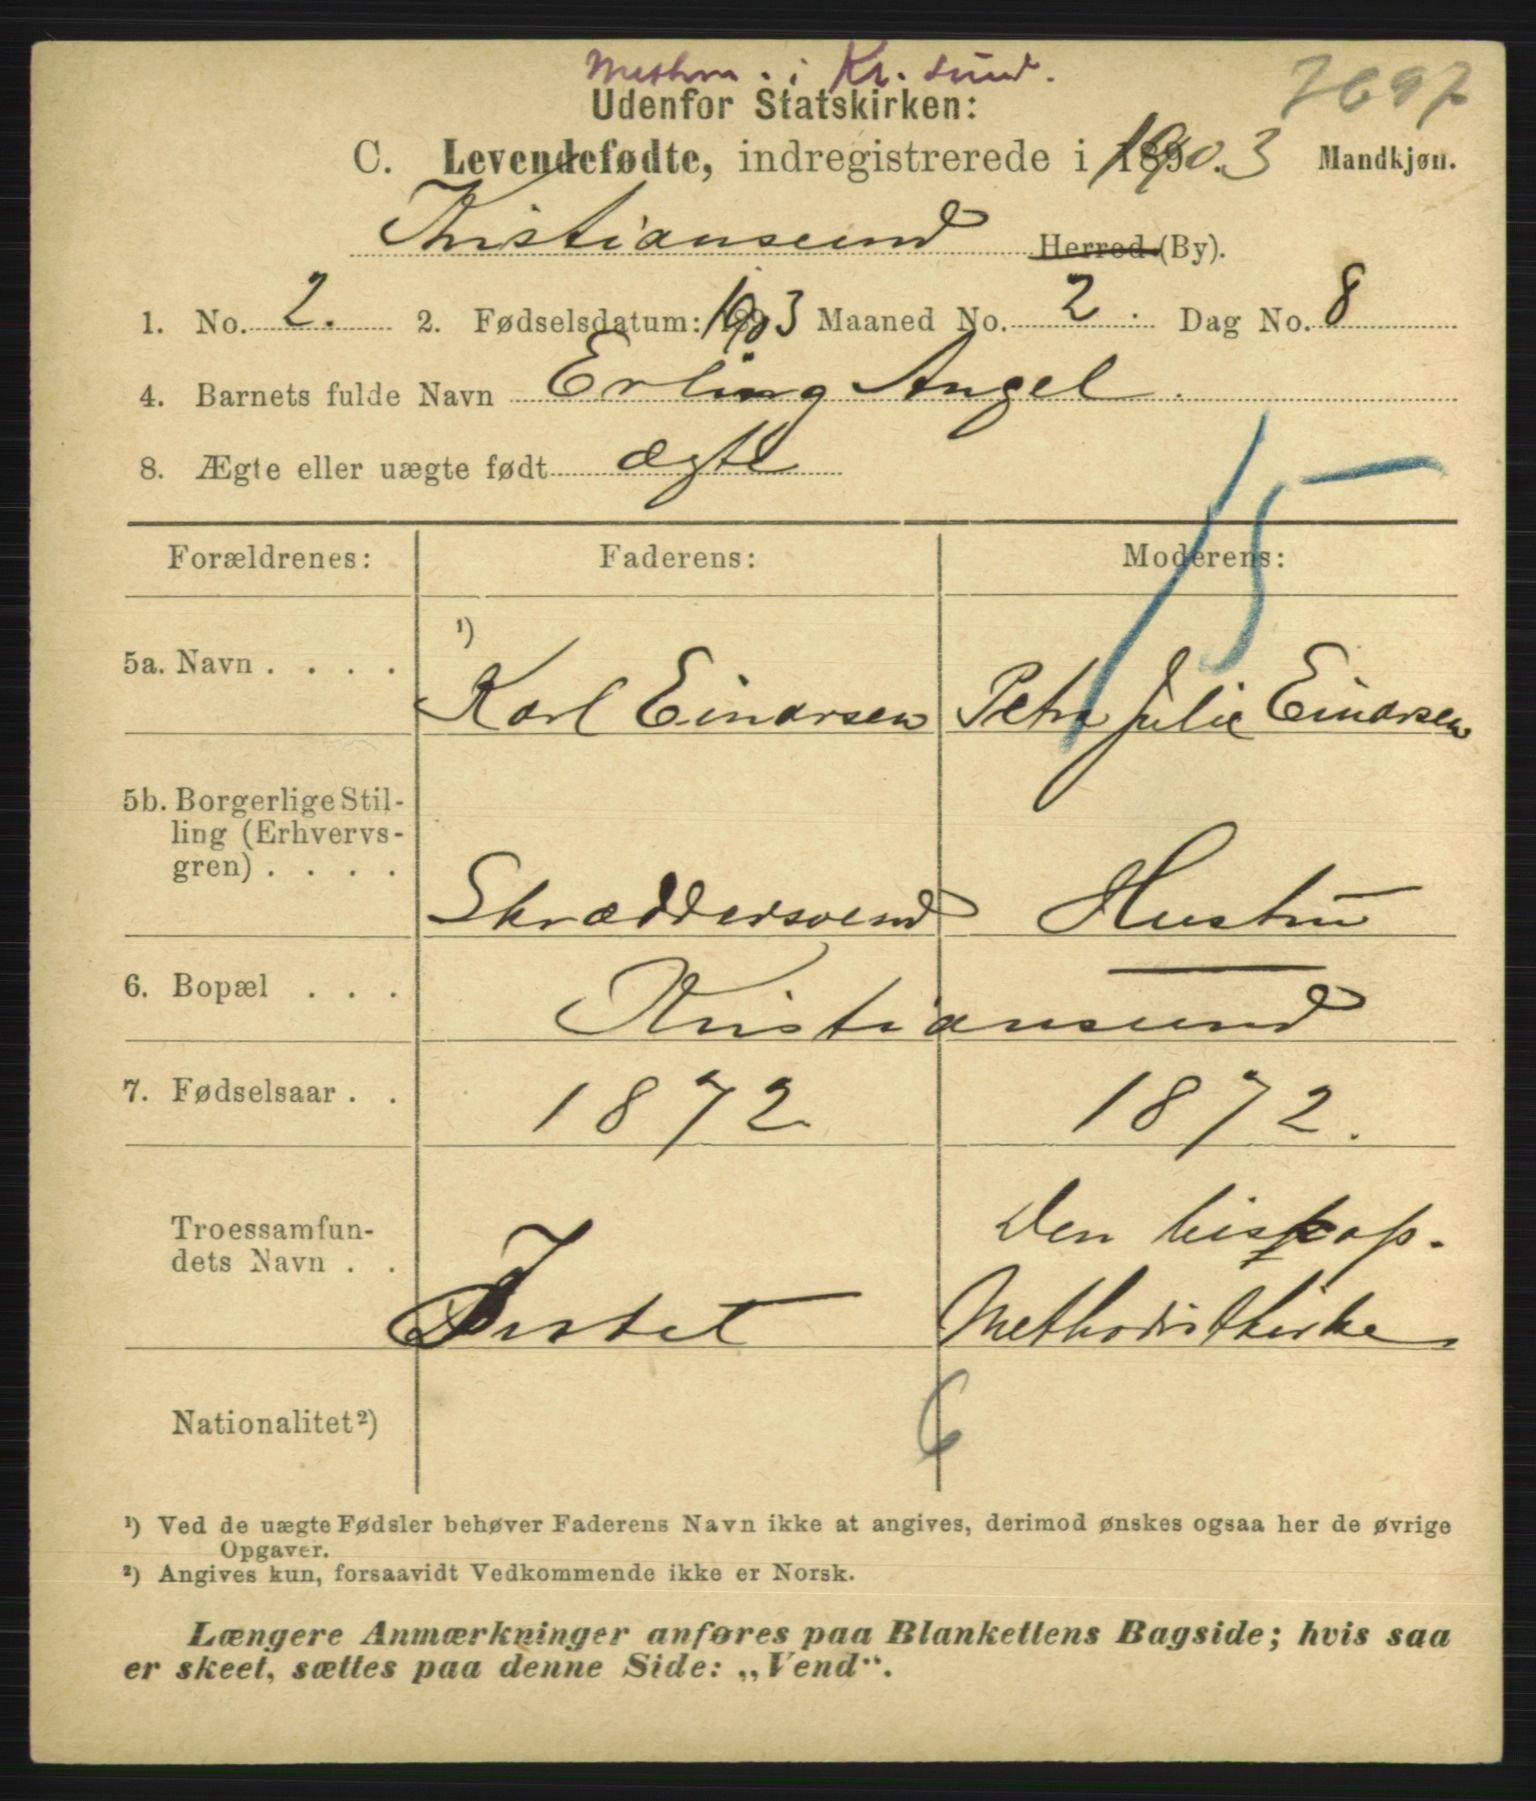 Methon. i Kr. sund.
7697
Udenfor Statskirken:
C. Levendefødte, indregistrerede i 1903 Mandkjøn.
Kristiansund Herred (By).
1. No. 2. 2. Fødselsdatum: 1903 Maaned No. 2. Dag No. 8
4. Barnets fulde Navn Erling Angel.
8. Ægte eller uægte født ægte
15
Forældrenes: Faderens: Moderens:
5a. Navn . . . . ¹) Karl Einarsen Petra Julie Einarsen
5b. Borgerlige Stil-
ling (Erhvervs-
gren) . . . . Skræddersvend Hustru
6. Bopæl . . . Kristiansund
7. Fødselsaar . . 1872 1872.
Troessamfun-
dets Navn . . Intet Den biskop.
Methodistkirke
6
Nationalitet²)
¹) Ved de uægte Fødsler behøver Faderens Navn ikke at angives, derimod ønskes ogsaa her de øvrige
Opgaver.
²) Angives kun, forsaavidt Vedkommende ikke er Norsk.
Længere Anmærkninger anføres paa Blankettens Bagside; hvis saa
er skeet, sættes paa denne Side: „Vend“.